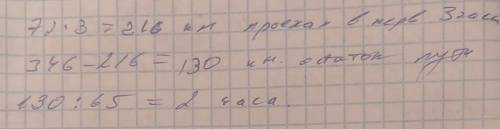 72·3=216 км проехал в перв 3 часа
346-216=130 км. остаток пути
130:65=2 часа.